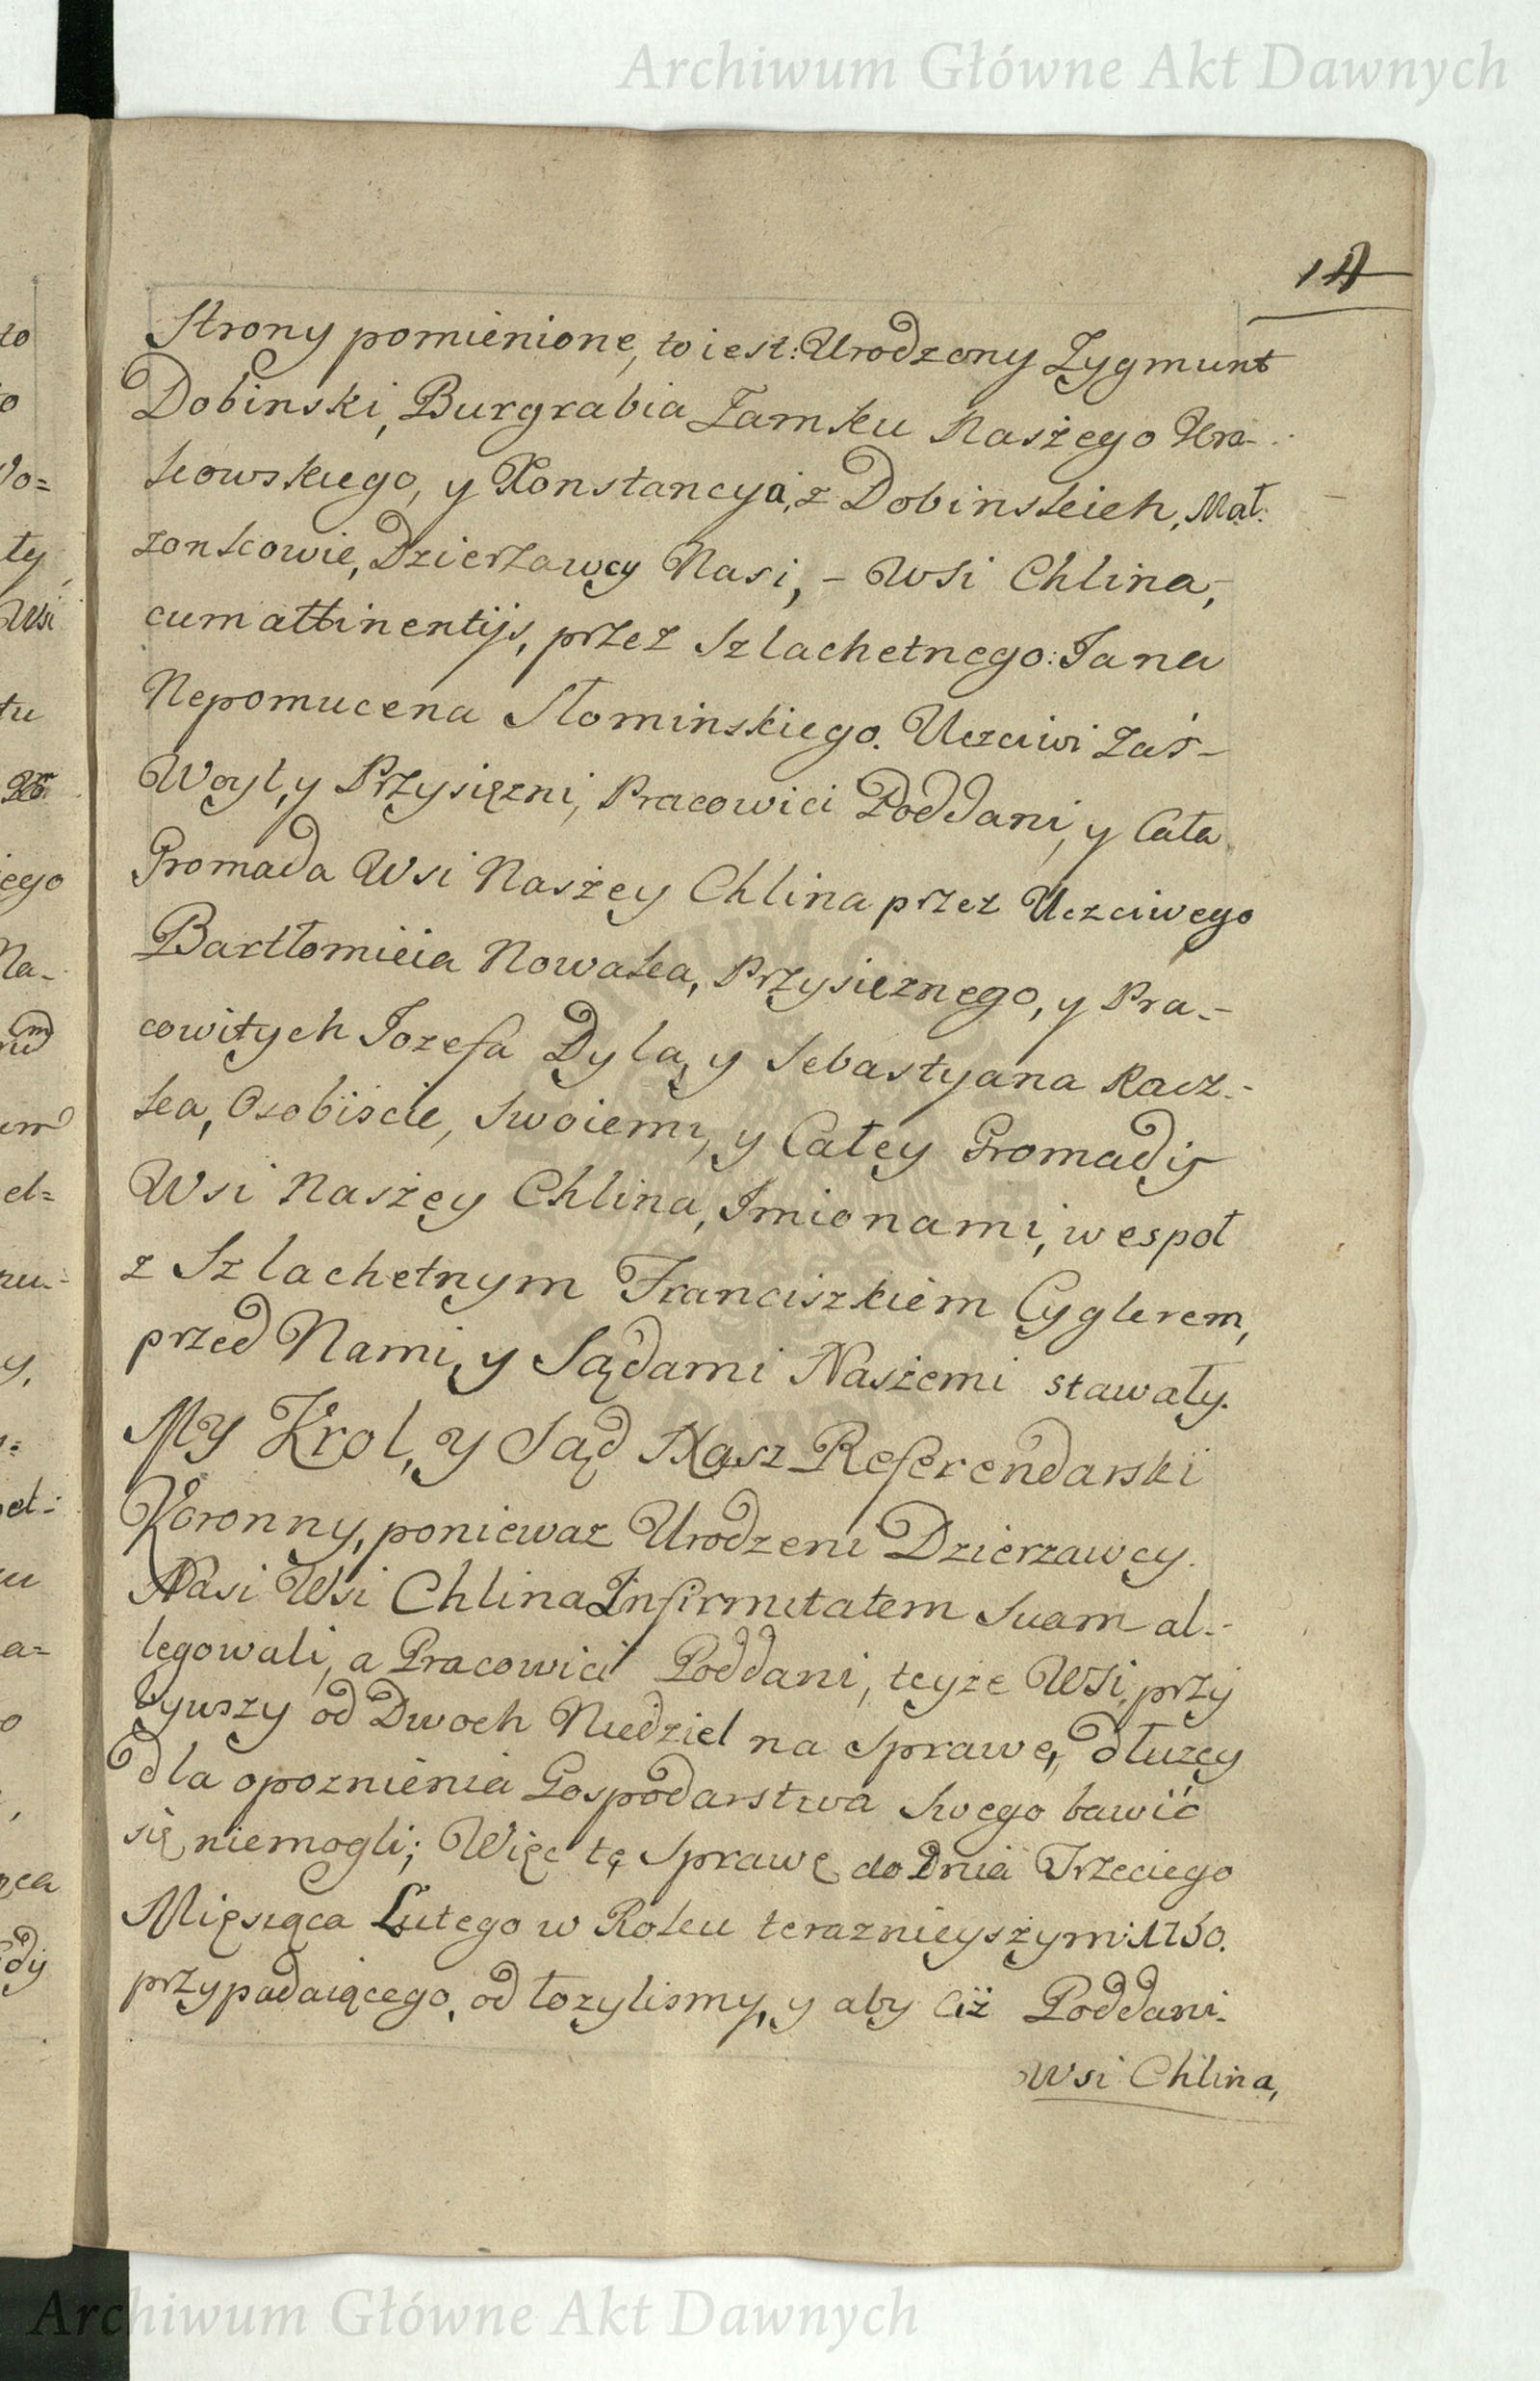 Archiwum Główne Akt Dawnych
14
Strony pomienione, to iest: Urodzony Zygmunt
Dobinski, Burgrabia Zamku Naszego Kra-
kowskiego, y Konstancya, z Dobinskich, Mał:
zonkowie, Dzierzawcy Nasi, - Wsi Chlina,
cum attinentijs, przez Szlachetnego: Jana
Nepomucena Słominskiego. Uczciwi zaś-
Woyt, y Przysięzni, Pracowici Poddani, y Cała
Gromada Wsi Naszey Chlina przez Uczciwego
Bartłomieia Nowaka, Przysiężnego, y Pra-
cowitych Jozefa Dyla, y Sebastyana Racz-
ka, Osobiscie, Swoiemi, y Całey Gromady
Wsi Naszey Chlina, Imionami, wespoł
z Szlachetnym Franciszkiem Cyglerem,
przed Nami, y Sądami Naszemi stawały.
My Krol, y Sąd Nasz Referendarski
Koronny, poniewaz Urodzeni Dzierzawcy.
Nasi Wsi Chlina Infirmitatem Suam al-
legowali, a Pracowici Poddani, teyże Wsi, przy
bywszy od Dwoch Niedziel na Sprawę, dłuzey
dla opoznienia Gospodarstwa Swego bawić
się niemogli; Więc tę Sprawę do Dnia Trzeciego
Miesiąca Lutego w Roku teraznieyszym: 1750.
przypadaiącego, odłozylismy, y aby Ciż Poddani
Wsi Chlina,
Archiwum Główne Akt Dawnych